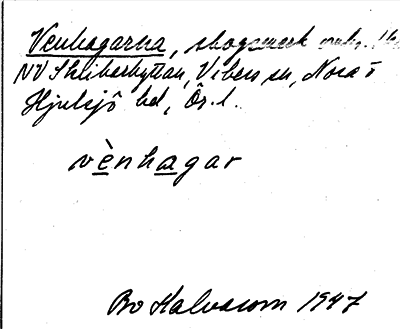 Venhagarna, skogsmark
NV Skrikarhyttan, Vikers sn, Nora o
Hjulsjö hd, Ör. l.
vènhagar
Bo Kalvasom 1947